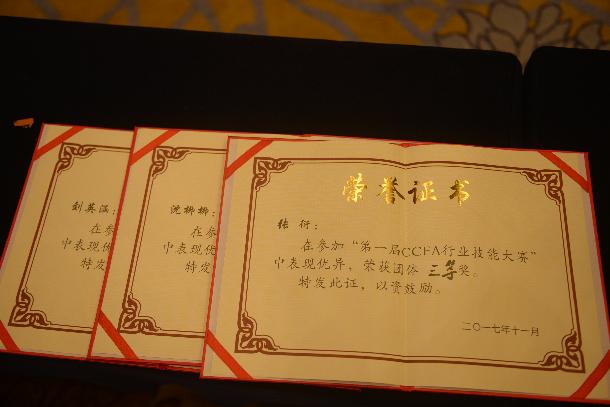 刘英涵：
在
中表现优
特发
沈娜娜：
在参
中表现优
特发
荣誉证书
张衍：
在参加“第一届CCFA行业技能大赛”
中表现优异，荣获团体 三等奖。
特发此证，以资鼓励。
二〇一七年十一月